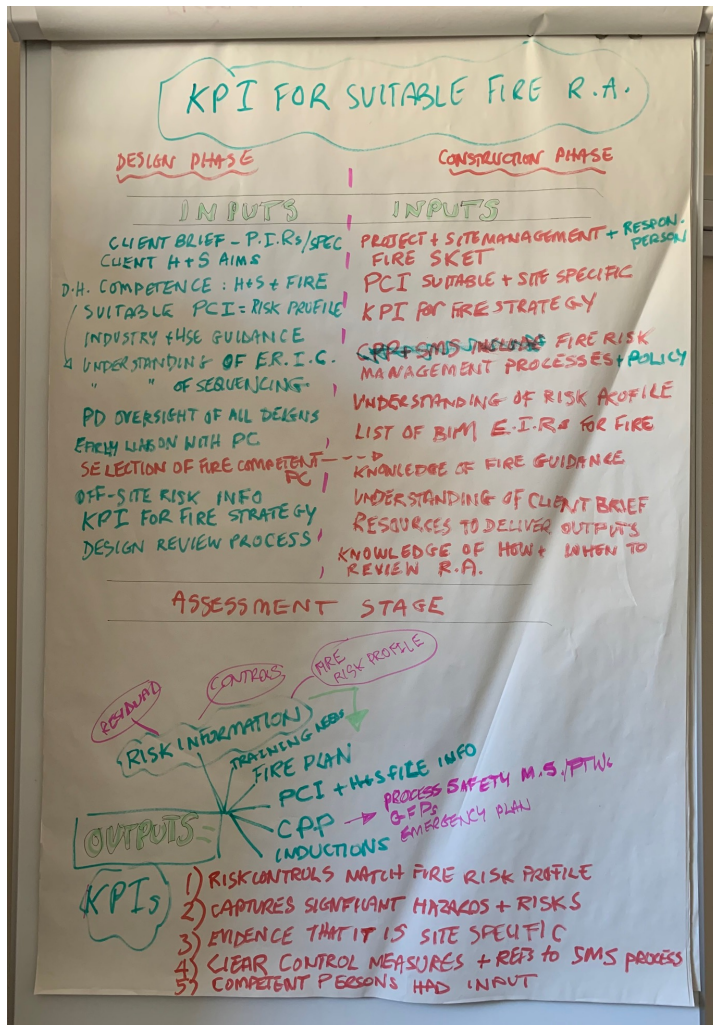 KPI FOR SUITABLE FIRE R.A.
DESIGN PHASE
INPUTS
CLIENT BRIEF - P.I.Rs/SPEC
CLIENT H+S AIMS
D.H. COMPETENCE : H+S + FIRE
SUITABLE PCI = RISK PROFILE
INDUSTRY + HSE GUIDANCE
UNDERSTANDING OF E.R.I.C.
" " OF SEQUENCING.
PD OVERSIGHT OF ALL DEIGNS
EARLY LIASON WITH PC
SELECTION OF FIRE COMPETENT
PC
OFF-SITE RISK INFO
KPI FOR FIRE STRATEGY
DESIGN REVIEW PROCESS
CONSTRUCTION PHASE
INPUTS
PROJECT + SITE MANAGEMENT + RESPON.
PERSON
FIRE SKET
PCI SUITABLE + SITE SPECIFIC
KPI FOR FIRE STRATEGY
FIRE RISK
MANAGEMENT PROCESSES + POLICY
UNDERSTANDING OF RISK PROFILE
LIST OF BIM E.I.Rs FOR FIRE
KNOWLEDGE OF FIRE GUIDANCE
UNDERSTANDING OF CLIENT BRIEF
RESOURCES TO DELIVER OUTPUTS
KNOWLEDGE OF HOW + WHEN TO
REVIEW R.A.
ASSESSMENT STAGE
RESIDUAL
CONTROLS
FIRE
RISK PROFILE
RISK INFORMATION
TRAINING NEEDS
FIRE PLAN
PCI + H+S FILE INFO
CPP → PROCESS SAFETY M.S./PTWs
GFPs
EMERGENCY PLAN
INDUCTIONS
OUTPUTS
KPIs
1) RISK CONTROLS MATCH FIRE RISK PROFILE
2) CAPTURES SIGNFIANT HAZARDS + RISKS
3) EVIDENCE THAT IT IS SITE SPECIFIC
4) CLEAR CONTROL MEASURES + REFS TO SMS PROCESS
5) COMPETENT PERSONS HAD INPUT